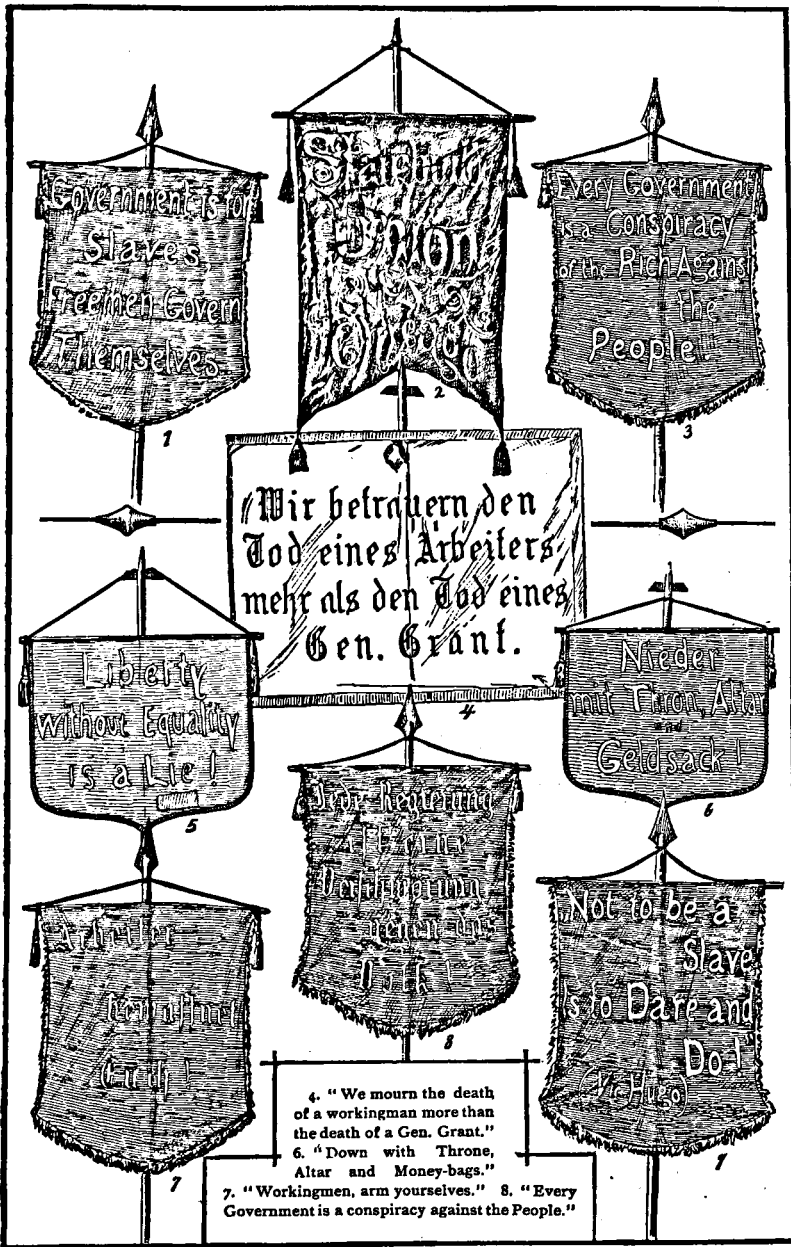 Government is for
Slaves,
Freemen Govern
Themselves
1
Union
Chicago
2
Every Government
is a Conspiracy
of the Rich Against
the
People!
3
"Wir betrauern den
Tod eines Arbeiters
mehr als den Tod eines
Gen. Grant.
4
Liberty
without Equality
is a Lie!
5
Nieder
mit Thron, Altar
and
Geldsack!
6
Arbeiter
bewaffnet
Euch!
7
Jede Regierung
ist eine
Verschwörung
gegen das
Volk!
8
Not to be a
Slave
Is to Dare and
Do!
(Vic Hugo)
9
4. "We mourn the death
of a workingman more than
the death of a Gen. Grant."
6. "Down with Throne,
Altar and Money-bags."
7. "Workingmen, arm yourselves." 8. "Every
Government is a conspiracy against the People."